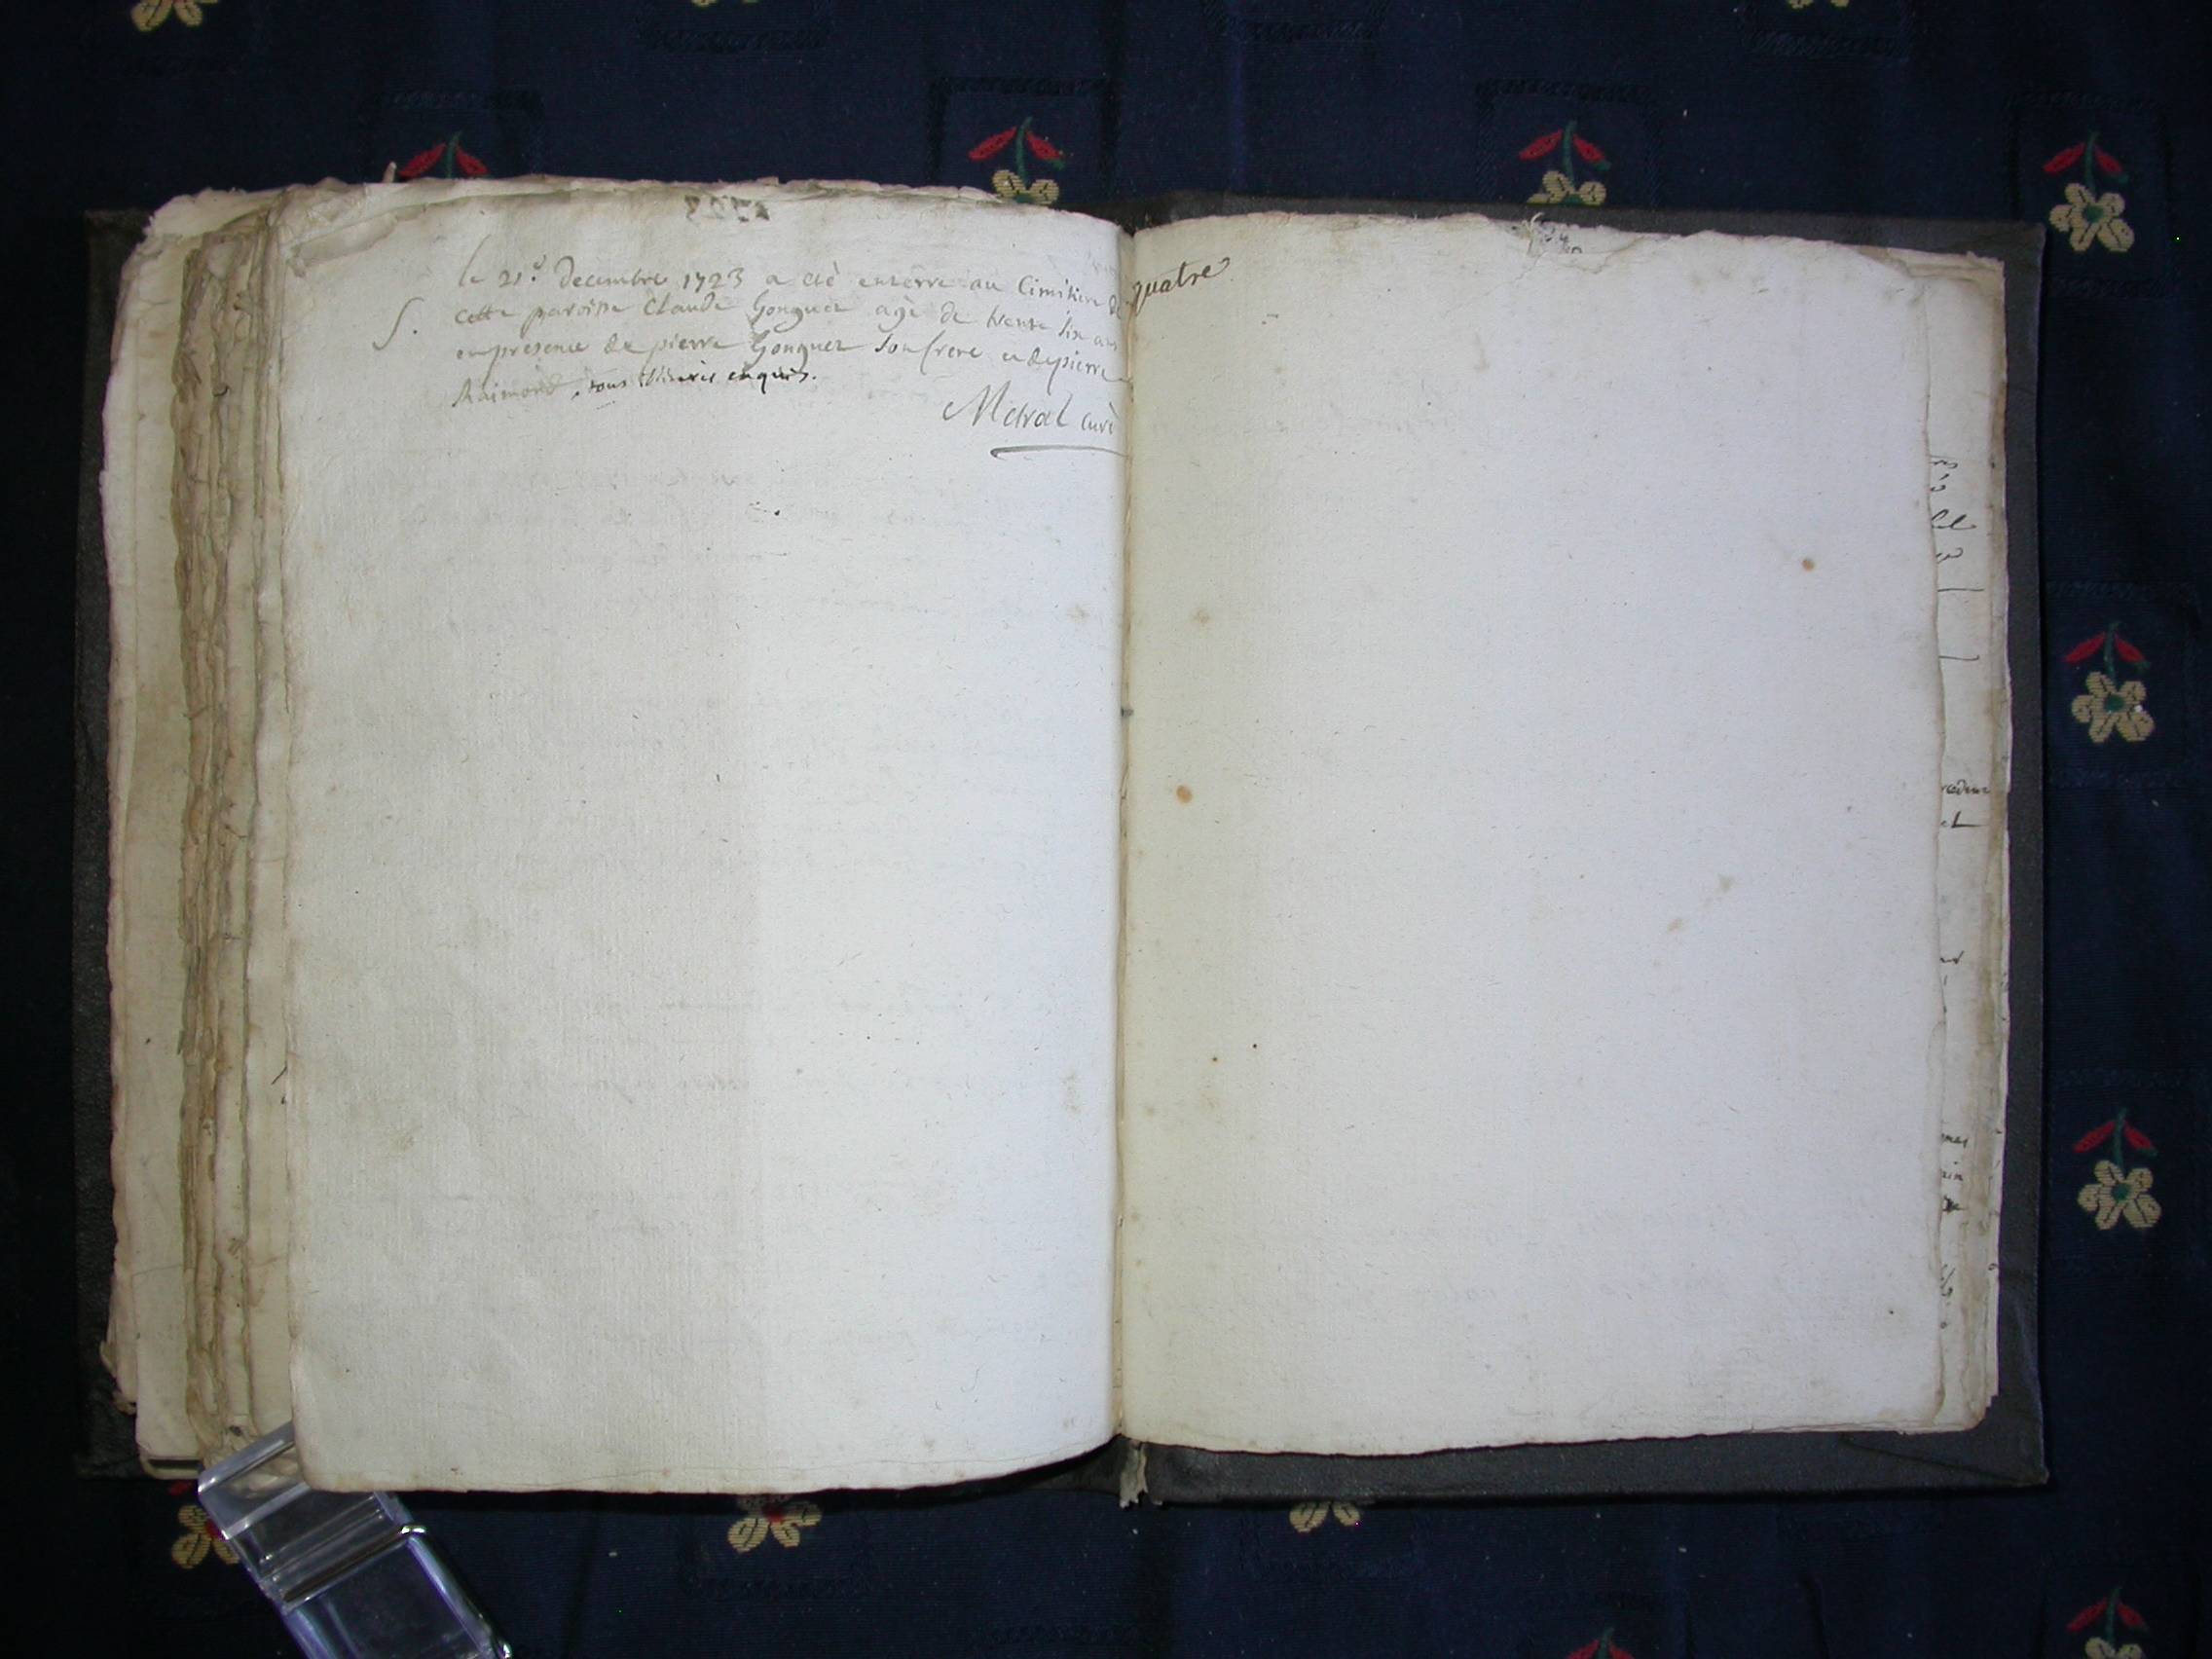 le 21.e decembre 1723 a eté enterré au Cimitiere de
S. cette paroisse Claude Gonguet agé de trente six ans
en presence de pierre Gonguet son frere et de pierre
Raimond, tous illiterés enquis.
Meral curé
quatre